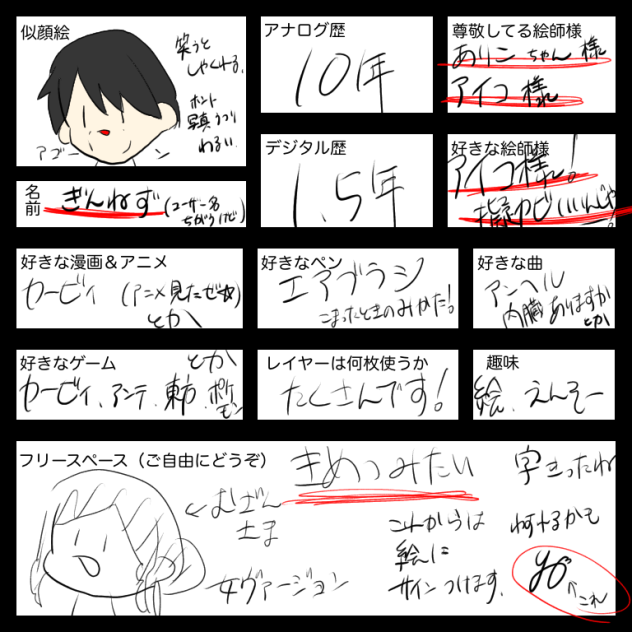 似顔絵
笑うと
しゃくれる。
ホント
写真うつり
わるい。
アゴー
ン
アナログ歴
10年
尊敬してる絵師様
ありこちゃん様
アイコ様
デジタル歴
1.5年
好きな絵師様
アイコ様!
名前
ぎんねず(ユーザー名
ちがうけど)
好きな漫画&アニメ
カービィ(アニメ見たぜ☆)
とか
好きなペン
エアブラシ
こまったときのみかた!
好きな曲
アンヘル
内臓ありますか
とか
好きなゲーム
とか
カービィ、アンテ、東方、ポケ
モン
レイヤーは何枚使うか
たくさんです!
趣味
絵、えんそー
フリースペース(ご自由にどうぞ)
きめつみたい
字きったね
←むざん
さま
女ヴァージョン
これからは
絵に
サインつけます。
何するかも
←これ